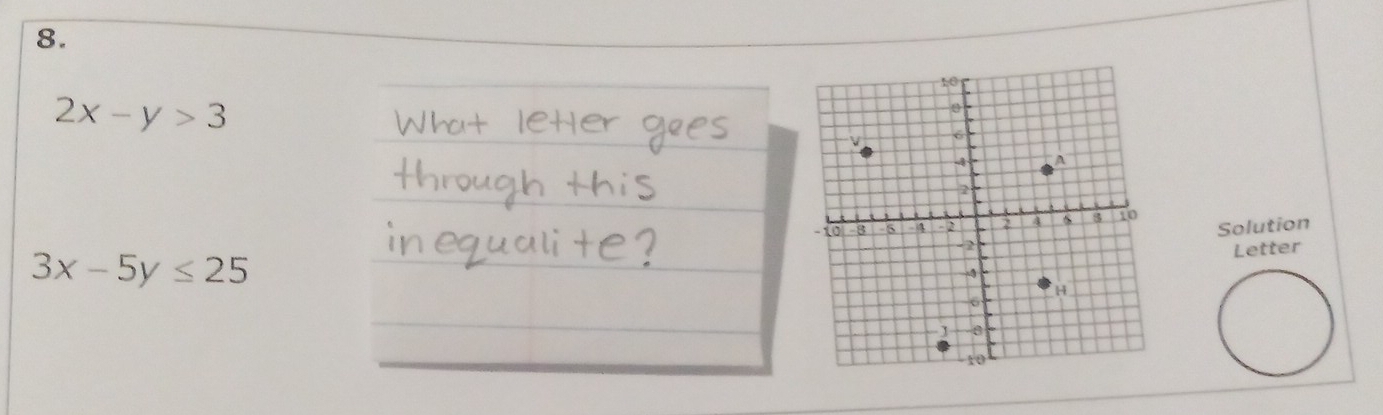 8.
2x − y > 3
3x − 5y ≤ 25
What letter goes
through this
inequalite?
10
8
6
4
2
-10 -8 -6 -4 -2 2 4 6 8 10
-2
-4
-6
-8
-10
V
A
H
J
Solution
Letter